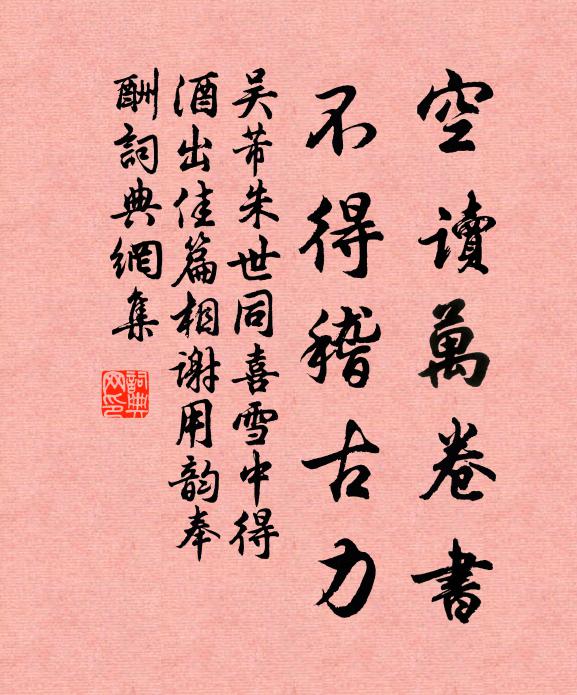 空讀萬卷書
不得稽古力
吴芾朱世同喜雪中得
酒出佳篇相谢用韵奉
酬詞典網集
詞典
网印